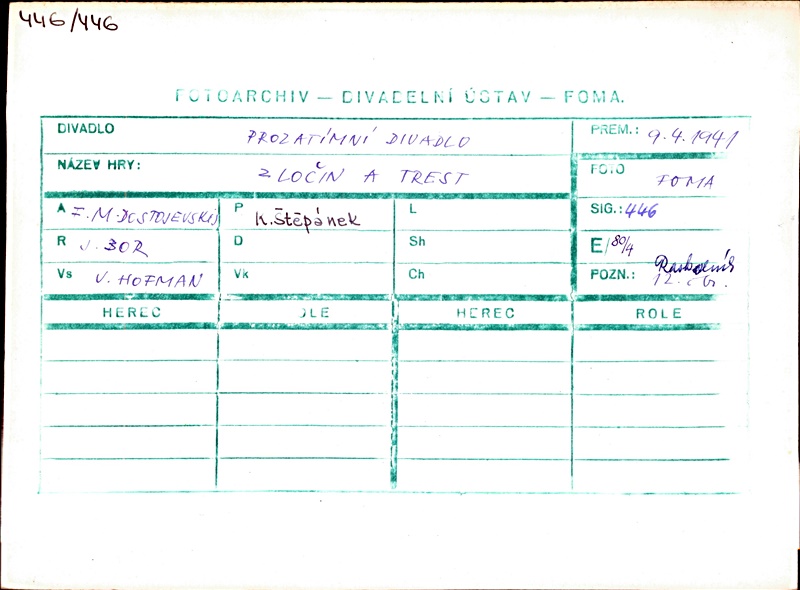 446/446
FOTOARCHIV — DIVADELNÍ ÚSTAV — FOMA.
DIVADLO PROZATÍMNÍ DIVADLO PREM.: 9.4.1941
NÁZEV HRY: ZLOČIN A TREST FOTO FOMA
A F. M. DOSTOJEVSKIJ P K. Štěpánek L SIG.: 446
R J. BOR D Sh E/80/4
Vs V. HOFMAN Vk Ch POZN.:
HEREC OLE HEREC ROLE